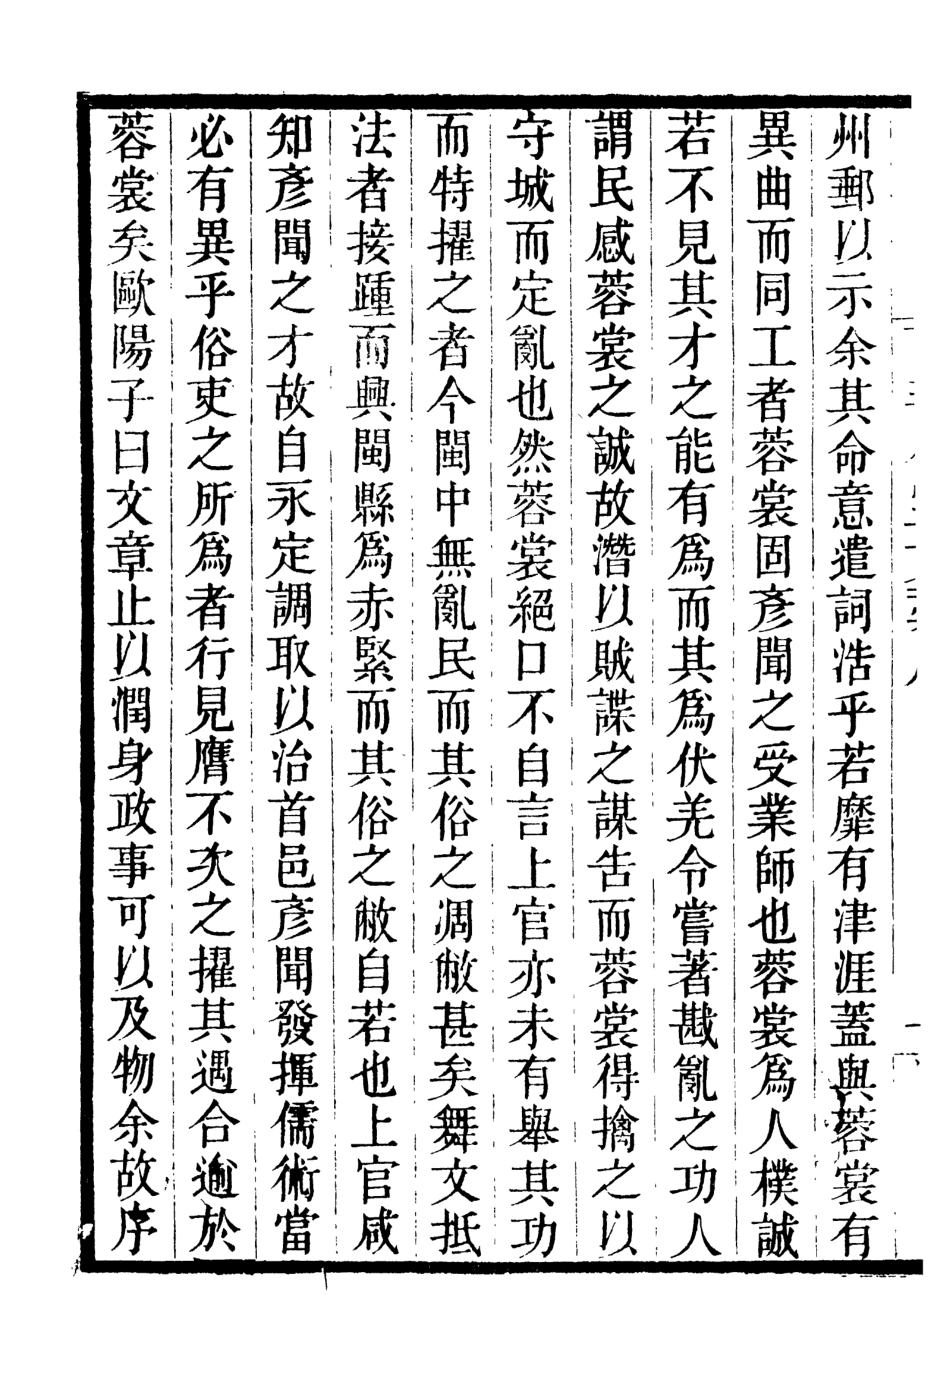 州郵以示余其命意遣詞浩乎若靡有津涯蓋與蓉裳有
異曲而同工者蓉裳固彥聞之受業師也蓉裳爲人樸誠
若不見其才之能有爲而其爲伏羌令嘗著戡亂之功人
謂民感蓉裳之誠故潛以賊諜之謀告而蓉裳得擒之以
守城而定亂也然蓉裳絕口不自言上官亦未有舉其功
而特擢之者今閩中無亂民而其俗之凋敝甚矣舞文抵
法者接踵而興閩縣爲赤緊而其俗之敝自若也上官咸
知彥聞之才故自永定調取以治首邑彥聞發揮儒術當
必有異乎俗吏之所爲者行見膺不次之擢其遇合逾於
蓉裳矣歐陽子曰文章止以潤身政事可以及物余故序